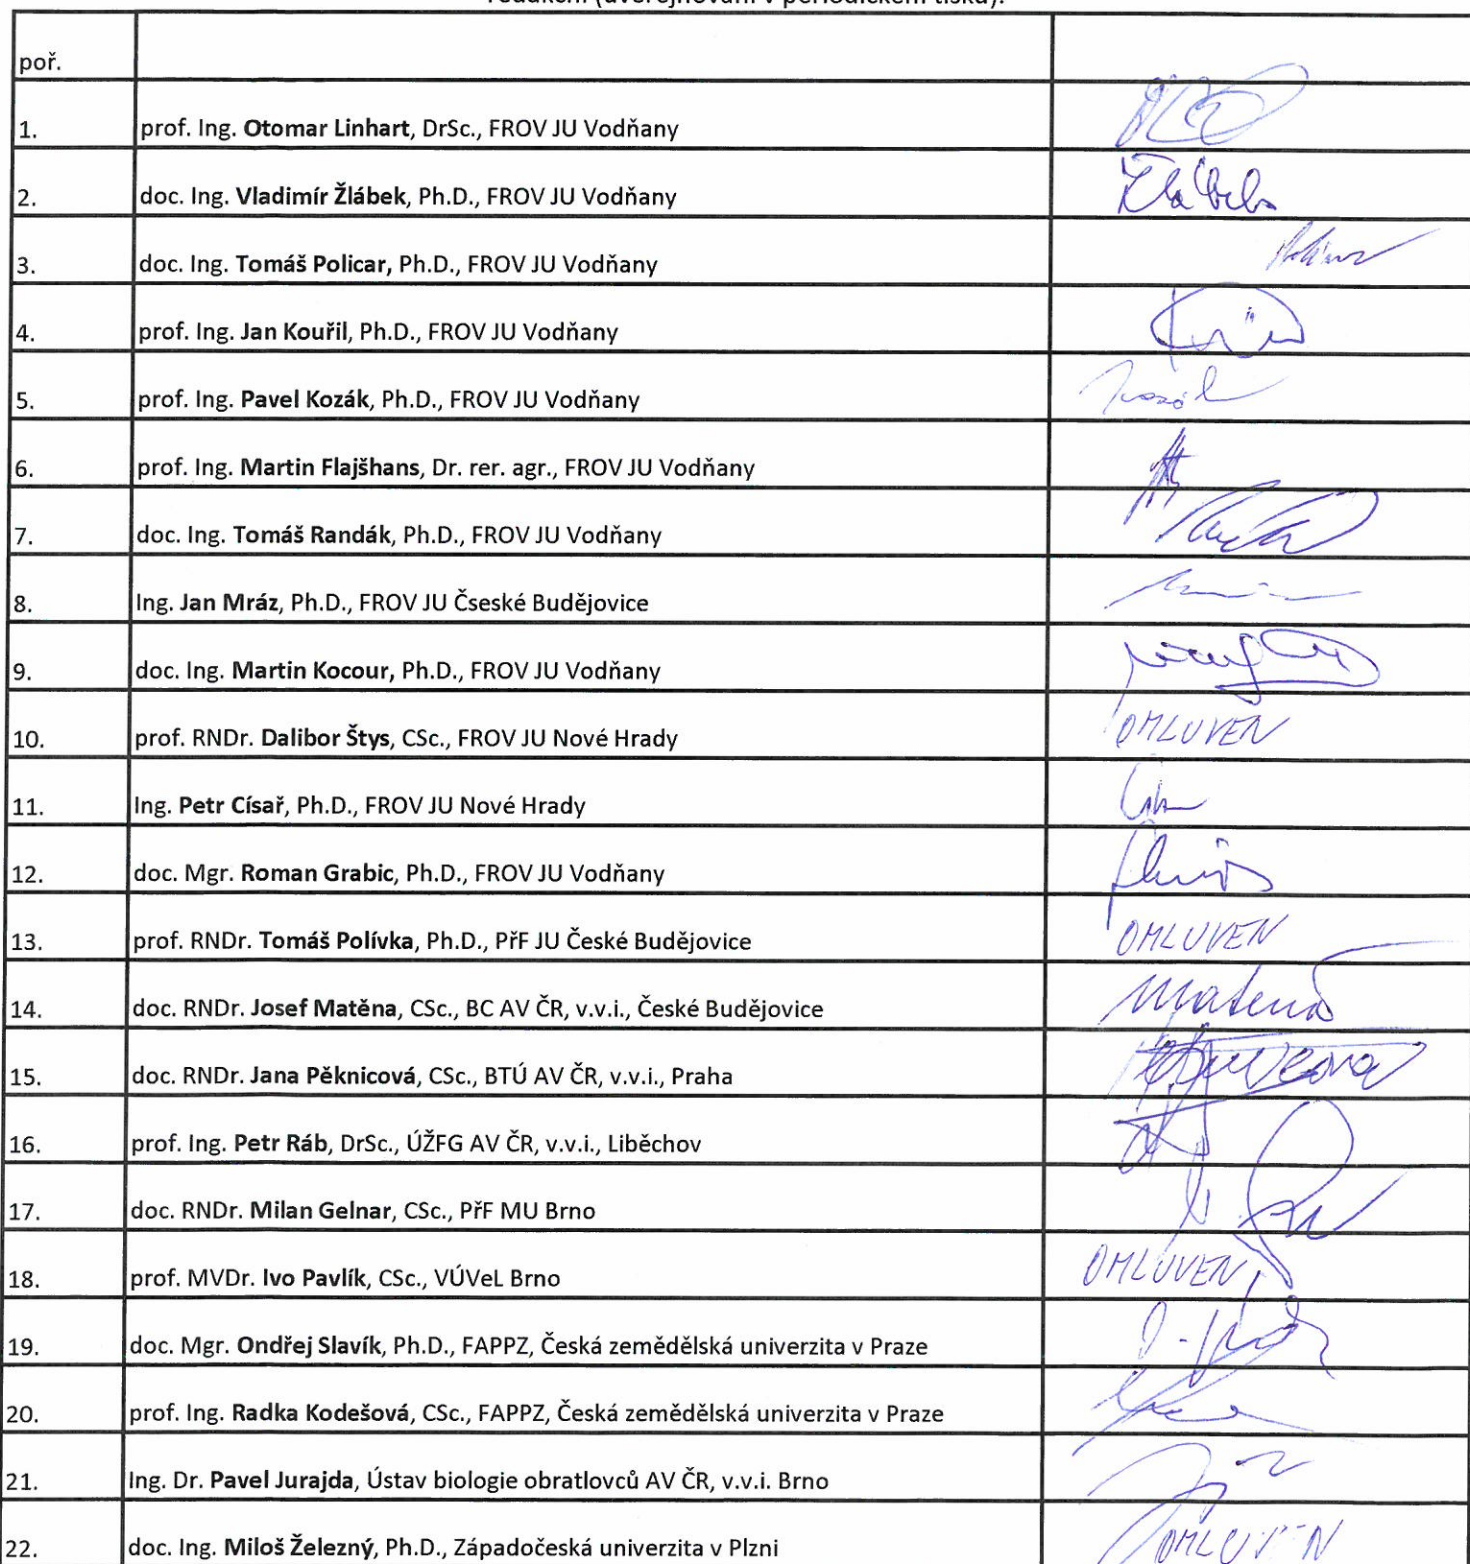 redakční (uveřejňování v periodickém tisku).
poř.
1. prof. Ing. Otomar Linhart, DrSc., FROV JU Vodňany
2. doc. Ing. Vladimír Žlábek, Ph.D., FROV JU Vodňany Žlábek
3. doc. Ing. Tomáš Policar, Ph.D., FROV JU Vodňany
4. prof. Ing. Jan Kouřil, Ph.D., FROV JU Vodňany
5. prof. Ing. Pavel Kozák, Ph.D., FROV JU Vodňany Kozák
6. prof. Ing. Martin Flajšhans, Dr. rer. agr., FROV JU Vodňany
7. doc. Ing. Tomáš Randák, Ph.D., FROV JU Vodňany
8. Ing. Jan Mráz, Ph.D., FROV JU Čseské Budějovice
9. doc. Ing. Martin Kocour, Ph.D., FROV JU Vodňany
10. prof. RNDr. Dalibor Štys, CSc., FROV JU Nové Hrady OMLUVEN
11. Ing. Petr Císař, Ph.D., FROV JU Nové Hrady
12. doc. Mgr. Roman Grabic, Ph.D., FROV JU Vodňany
13. prof. RNDr. Tomáš Polívka, Ph.D., PřF JU České Budějovice OMLUVEN
14. doc. RNDr. Josef Matěna, CSc., BC AV ČR, v.v.i., České Budějovice Matěna
15. doc. RNDr. Jana Pěknicová, CSc., BTÚ AV ČR, v.v.i., Praha
16. prof. Ing. Petr Ráb, DrSc., ÚŽFG AV ČR, v.v.i., Liběchov
17. doc. RNDr. Milan Gelnar, CSc., PřF MU Brno
18. prof. MVDr. Ivo Pavlík, CSc., VÚVeL Brno OMLUVEN
19. doc. Mgr. Ondřej Slavík, Ph.D., FAPPZ, Česká zemědělská univerzita v Praze
20. prof. Ing. Radka Kodešová, CSc., FAPPZ, Česká zemědělská univerzita v Praze
21. Ing. Dr. Pavel Jurajda, Ústav biologie obratlovců AV ČR, v.v.i. Brno
22. doc. Ing. Miloš Železný, Ph.D., Západočeská univerzita v Plzni OMLUVEN